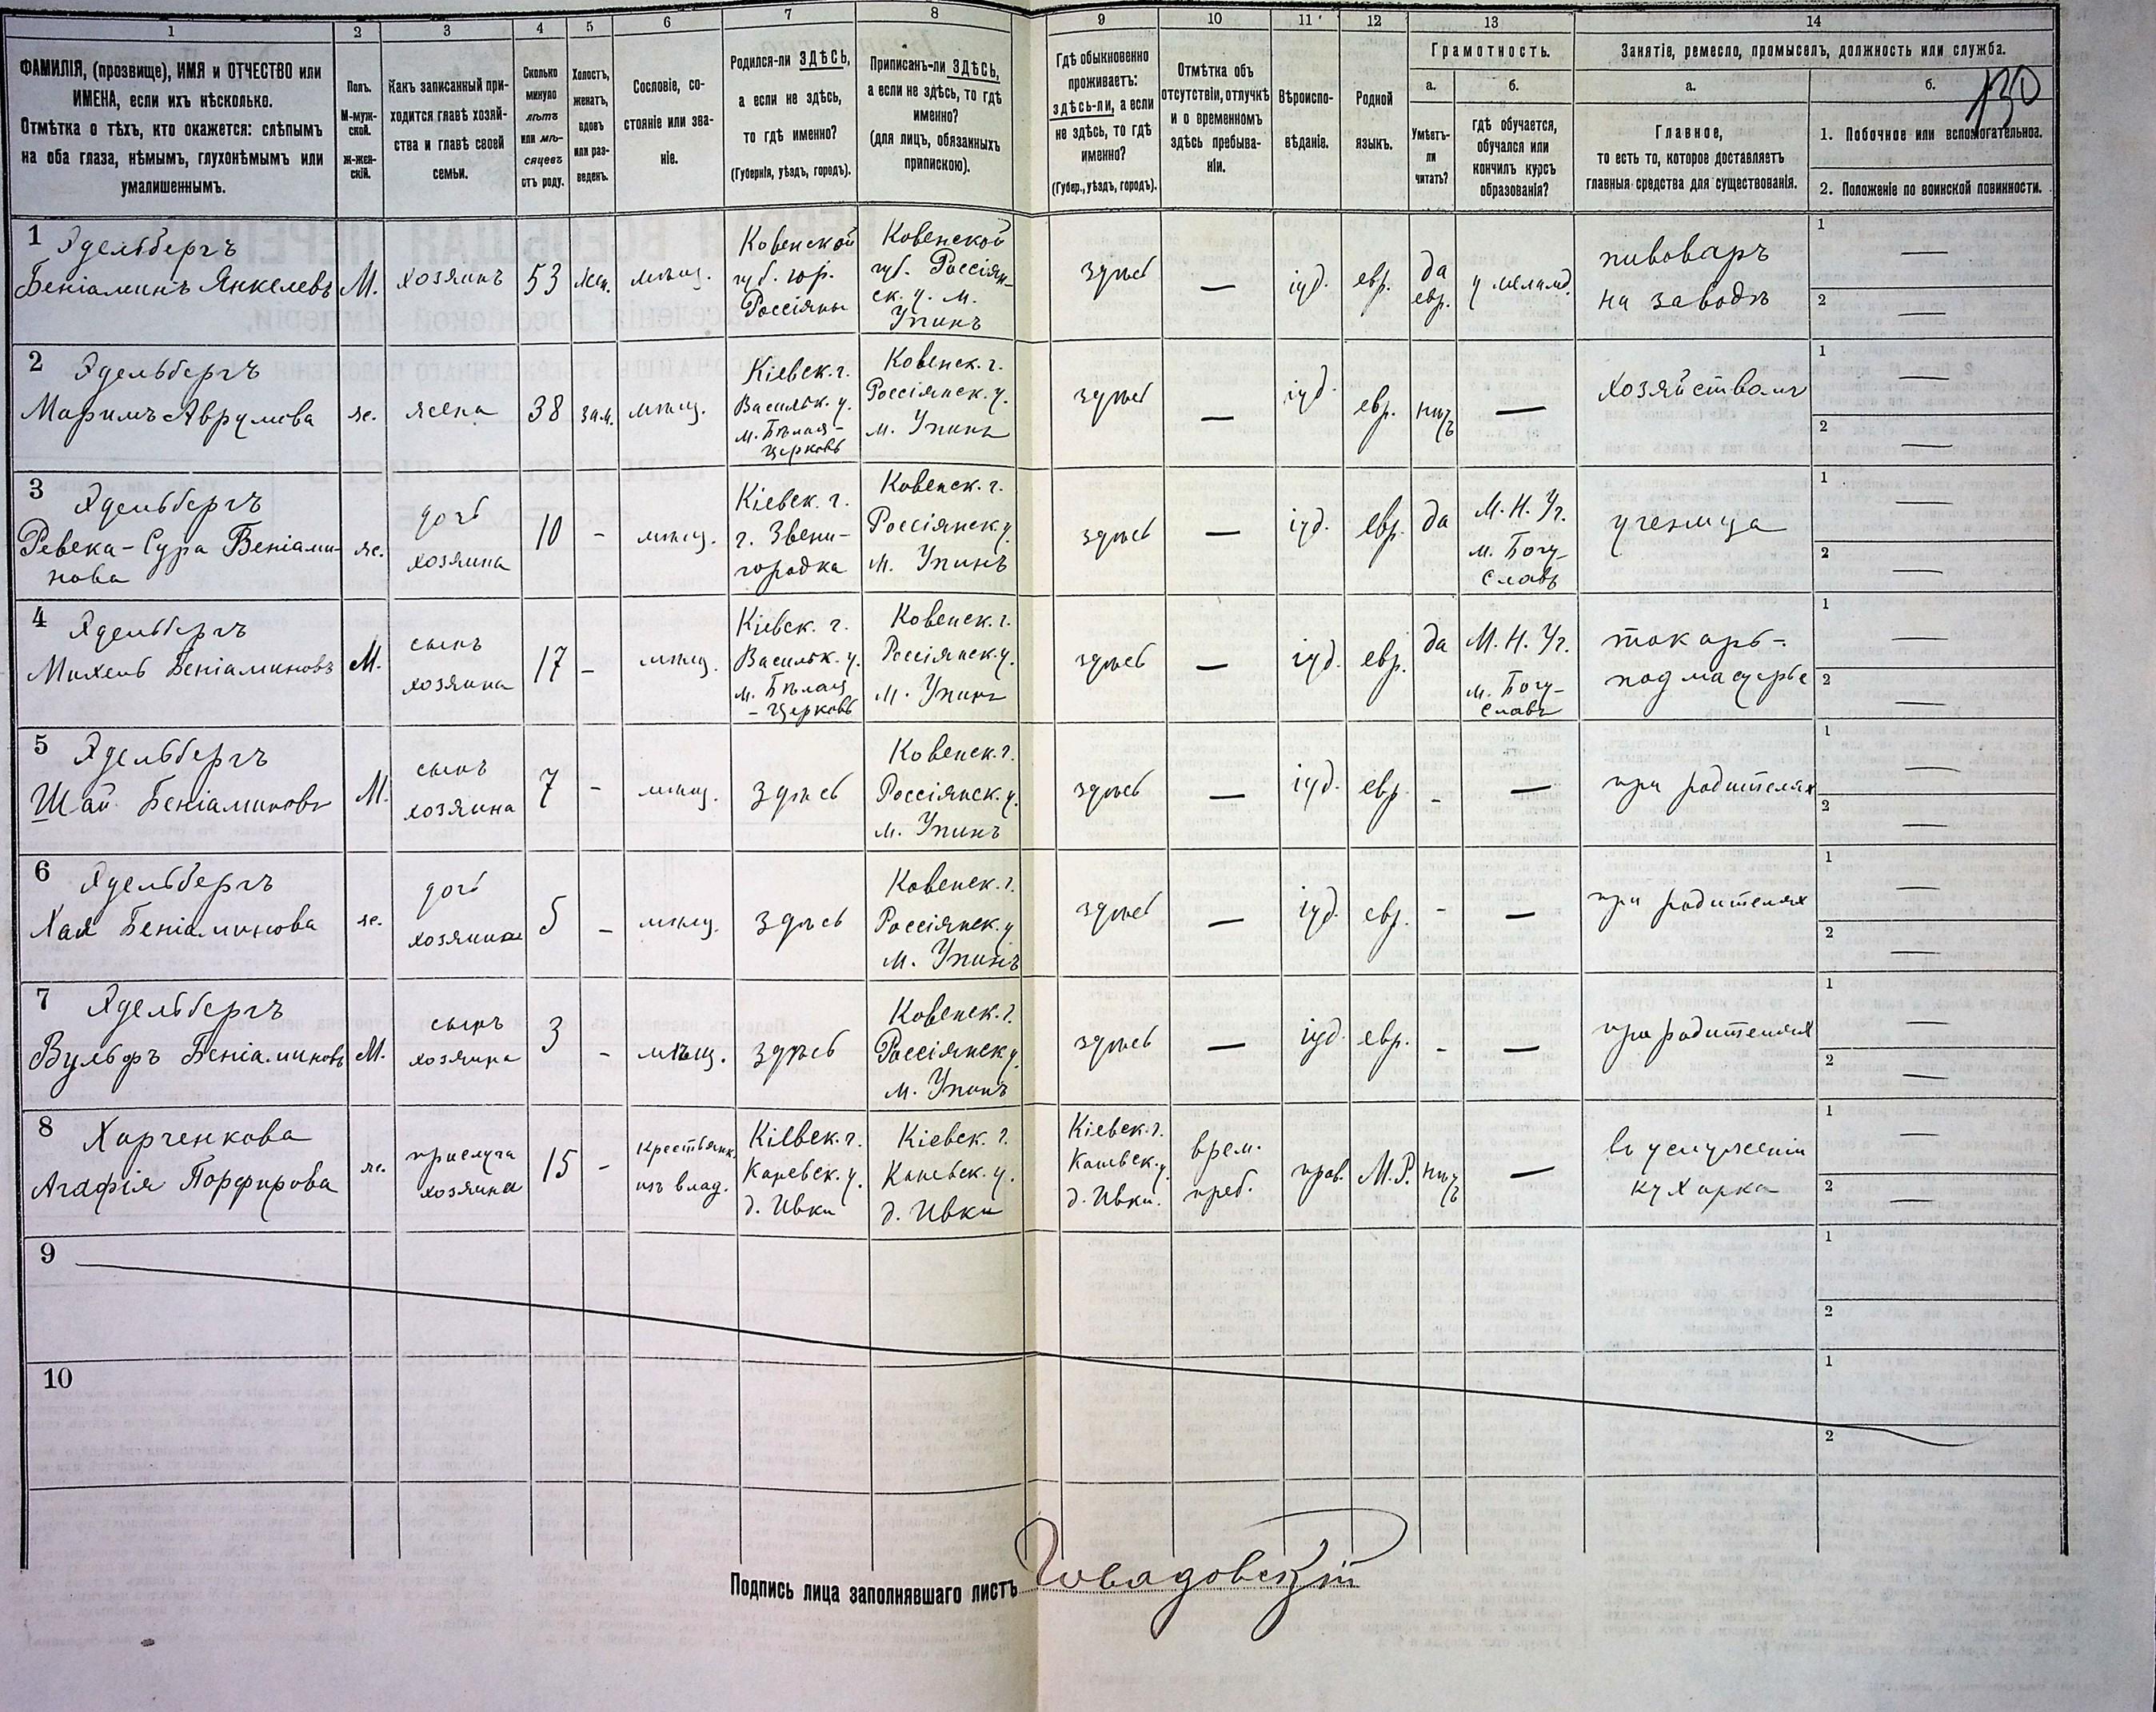 1 2 3 4 5 6 7 8 9 10 11 12 13 14
ФАМИЛІЯ, (прозвище), ИМЯ и ОТЧЕСТВО или
ИМЕНА, если ихъ нѣсколько.
Отмѣтка о тѣхъ, кто окажется: слѣпымъ
на оба глаза, нѣмымъ, глухонѣмымъ или
умалишеннымъ.
Полъ.
М-муж-
ской.
Ж-жен-
скій.
Какъ записанный при-
ходится главѣ хозяй-
ства и главѣ своей
семьи.
Сколько
минуло
лѣтъ
или мѣ-
сяцевъ
отъ роду.
Холостъ,
женатъ,
вдовъ
или раз-
веденъ.
Сословіе, со-
стояніе или зва-
ніе.
Родился-ли ЗДѢСЬ,
а если не здѣсь,
то гдѣ именно?
(Губернія, уѣздъ, городъ).
Приписанъ-ли ЗДѢСЬ,
а если не здѣсь, то гдѣ
именно?
(для лицъ, обязанныхъ
припискою).
Гдѣ обыкновенно
проживаетъ:
здѣсь-ли, а если
не здѣсь, то гдѣ
именно?
(Губер., уѣздъ, городъ).
Отмѣтка объ
отсутствіи, отлучкѣ
и о временномъ
здѣсь пребыва-
ніи.
Вѣроиспо-
вѣданіе.
Родной
языкъ.
Грамотность.
а.
Умѣетъ-
ли
читать?
б.
гдѣ обучается,
обучался или
кончилъ курсъ
образованія?
Занятіе, ремесло, промыселъ, должность или служба.
а.
Главное,
то есть то, которое доставляетъ
главныя средства для существованія.
б.
130
1. Побочное или вспомогательное.
2. Положеніе по воинской повинности.
1
Эдельбергъ
Беніаминъ Янкелевъ
М.
хозяинъ
53
жен.
мѣщ.
Ковенской
губ. гор.
Россіяны
Ковенской
губ. Россіян-
ск. у. м.
Упинъ
здѣсь
—
іуд.
евр.
да
евр.
у меламд.
пивоваръ
на заводѣ
1 —
2 —
2
Эдельбергъ
Маримъ Аврумова
ж.
жена
38
зам.
мѣщ.
Кіевск. г.
Васильк. у.
м. Бѣлая-
Церковь
Ковенск. г.
Россіянск. у.
м. Упинъ
здѣсь
—
іуд.
евр.
нѣтъ
—
хозяйствомъ
1 —
2 —
3
Эдельбергъ
Ревека-Сура Беніами-
нова
ж.
дочь
хозяина
10
-
мѣщ.
Кіевск. г.
г. Звени-
городка
Ковенск. г.
Россіянск. у.
м. Упинъ
здѣсь
—
іуд.
евр.
да
М. Н. Уч.
м. Богу-
славъ
ученица
1 —
2 —
4
Эдельбергъ
Михель Беніаминовъ
М.
сынъ
хозяина
17
-
мѣщ.
Кіевск. г.
Васильк. у.
м. Бѣлая
- Церковь
Ковенск. г.
Россіянск. у.
м. Упинъ
здѣсь
—
іуд.
евр.
да
М. Н. Уч.
м. Богу-
славъ
токарь-
подмастерье
1 —
2 —
5
Эдельбергъ
Шая Беніаминовъ
М.
сынъ
хозяина
7
-
мѣщ.
здѣсь
Ковенск. г.
Россіянск. у.
м. Упинъ
здѣсь
—
іуд.
евр.
-
—
при родителяхъ
1 —
2 —
6
Эдельбергъ
Хая Беніаминова
ж.
дочь
хозяина
5
-
мѣщ.
здѣсь
Ковенск. г.
Россіянск. у.
м. Упинъ
здѣсь
—
іуд.
евр.
-
—
при родителяхъ
1 —
2 —
7
Эдельбергъ
Вульфъ Беніаминовъ
М.
сынъ
хозяина
3
-
мѣщ.
здѣсь
Ковенск. г.
Россіянск. у.
м. Упинъ
здѣсь
—
іуд.
евр.
-
—
при родителяхъ
1 —
2 —
8
Харченкова
Агафія Порфирова
ж.
прислуга
хозяина
15
-
крестьянк.
изъ влад.
Кіевск. г.
Каневск. у.
д. Ивки
Кіевск. г.
Каневск. у.
д. Ивки
Кіевск. г.
Каневск. у.
д. Ивки.
врем.
преб.
прав.
М.Р.
нѣтъ
—
въ услуженіи
кухарка
1 —
2 —
9
1
2
10
1
2
Подпись лица заполнявшаго листъ